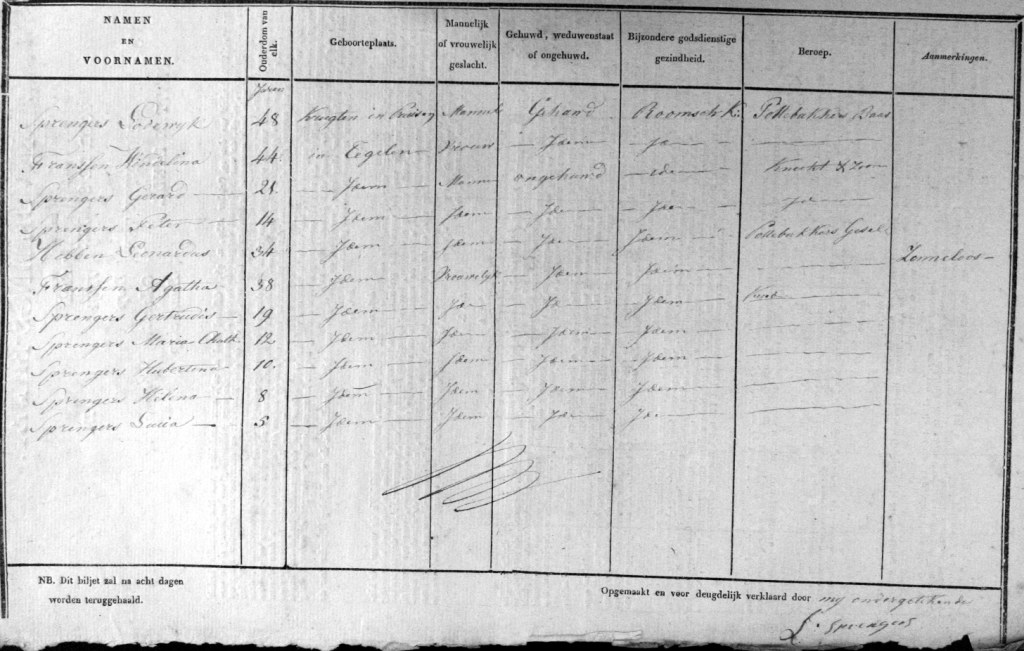 NAMEN EN VOORNAMEN. Ouderdom van elk. Geboorteplaats. Mannelijk of vrouwelijk geslacht. Gehuwd, weduwenstaat of ongehuwd. Bijzondere godsdienstige gezindheid. Beroep. Aanmerkingen.
Jaren
Sprengers Lodewyk 48 in Gehuwd Roomsch K: Pottebakkers Baas
Franssen 44 in Vrouw Idem
Sprengers Gerard 21 Idem ongehuwd Knecht & Zoon
Sprengers Peter 14 Idem Idem
Hebben Leonardus 34 Idem Idem Idem Pottebakkers Gesel
Franssen Agatha 38 Idem Vrouwelyk Idem Idem
Sprengers Gertrudis 19 Idem Idem
Sprengers Maria 12 Idem Idem Idem Idem
Sprengers Hubertina 10. Idem Idem Idem Idem
Sprengers Helena 8 Idem Idem Idem Idem
Sprengers Lucia 5 Idem Idem
NB. Dit biljet zal na acht dagen
worden teruggehaald.
Opgemaakt en voor deugdelijk verklaard door my ondergetekende
L. Sprengers